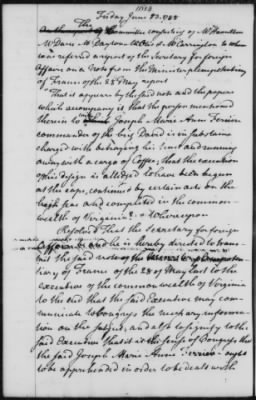 1788
Friday June 13. 1788
The Committee consisting of Mr Hamilton
Mr Dane Mr Dayton Mr Clark & Mr Carrington to whom
was referred a report of the Secretary for foreign
Affairs on a Note from the Minister plenipotentiary
of France of the 28 of May report
That it appears by the said note and the papers
which accompany it that the person mentioned
therein to wit Joseph Marie Anne Ferrier
commander of the brig David is in substance
charged with betraying his trust and running
away with a cargo of Coffee, that the execution
of his design is alledged to have been begun
at the cape, continued by certain acts on the
high seas and compleated in the common-
wealth of Virginia; Whereupon
Resolved That the Secretary for foreign
Affairs be and he is hereby directed to trans-
mit the said note of the
tiary of France of the 28 of May last to the
executive of the commonwealth of Virginia
to the end that the said Executive may com-
municate to Congress the necessary informa-
tion on the subject, and also to signify to the
said Executive that it is the sense of Congress that
the said Joseph Marie Anne Ferrier ought
to be apprehended in order to be dealt with